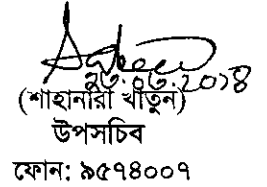 ২৩.০৬.২০১৪
(শাহানারা খাতুন)
উপসচিব
ফোন: ৯৫৭৪০০৭